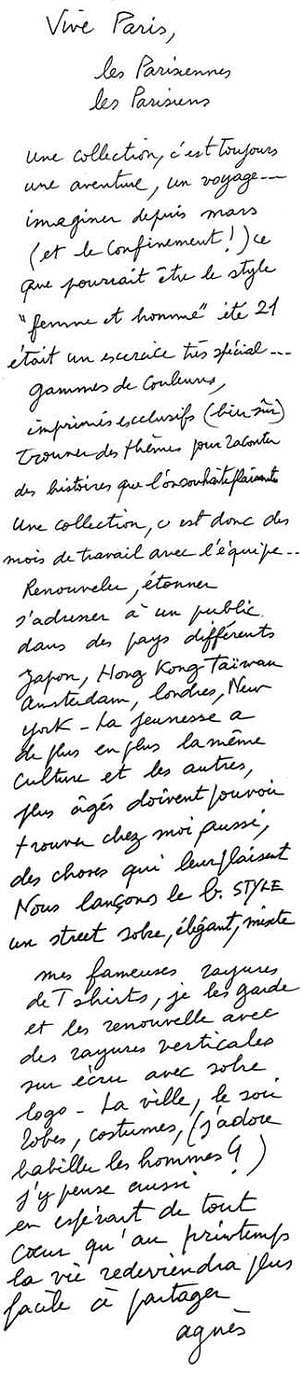 Vive Paris,
les Parisiennes
les Parisiens
une collection, c'est toujours
une aventure, un voyage ---
imaginer depuis mars
(et le confinement !) ce
que pourrait être le style
"femme et homme" été 21
était un exercice très spécial ---
gammes de couleurs,
imprimés exclusifs (bien sûr)
trouver des thèmes pour raconter
des histoires que l'on souhaite plaisantes
Une collection, c'est donc des
mois de travail avec l'équipe --
Renouveler, étonner
s'adresser à un public
dans des pays différents
Japon, Hong Kong Taïwan
Amsterdam, londres, New
york - La jeunesse a
de plus en plus la même
culture et les autres,
plus âgés doivent pouvoir
trouver chez moi aussi,
des choses qui leur plaisent
Nous lançons le b. STYLE
un street sobre, élégant, mixte
mes fameuses rayures
de T shirts, je les garde
et les renouvelle avec
des rayures verticales
sur écru avec notre
logo - La ville, le soir
robes, costumes, (j'adore
habiller les hommes !)
J'y pense aussi
en espérant de tout
cœur qu'au printemps
la vie redeviendra plus
facile à partager
agnès